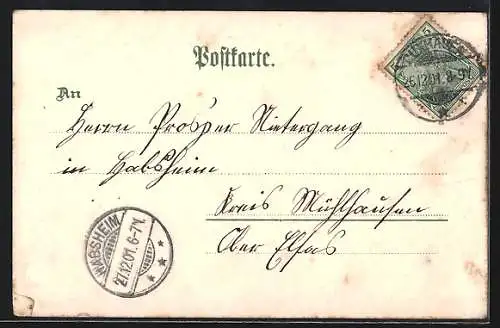 Postkarte.
26.12.01. 8-9V.
An
Herrn Prosper Nietergang
in Habsheim
Kreis Mühlhausen
Ober Elsas
HABSHEIM
27.12.01. 6-7V.